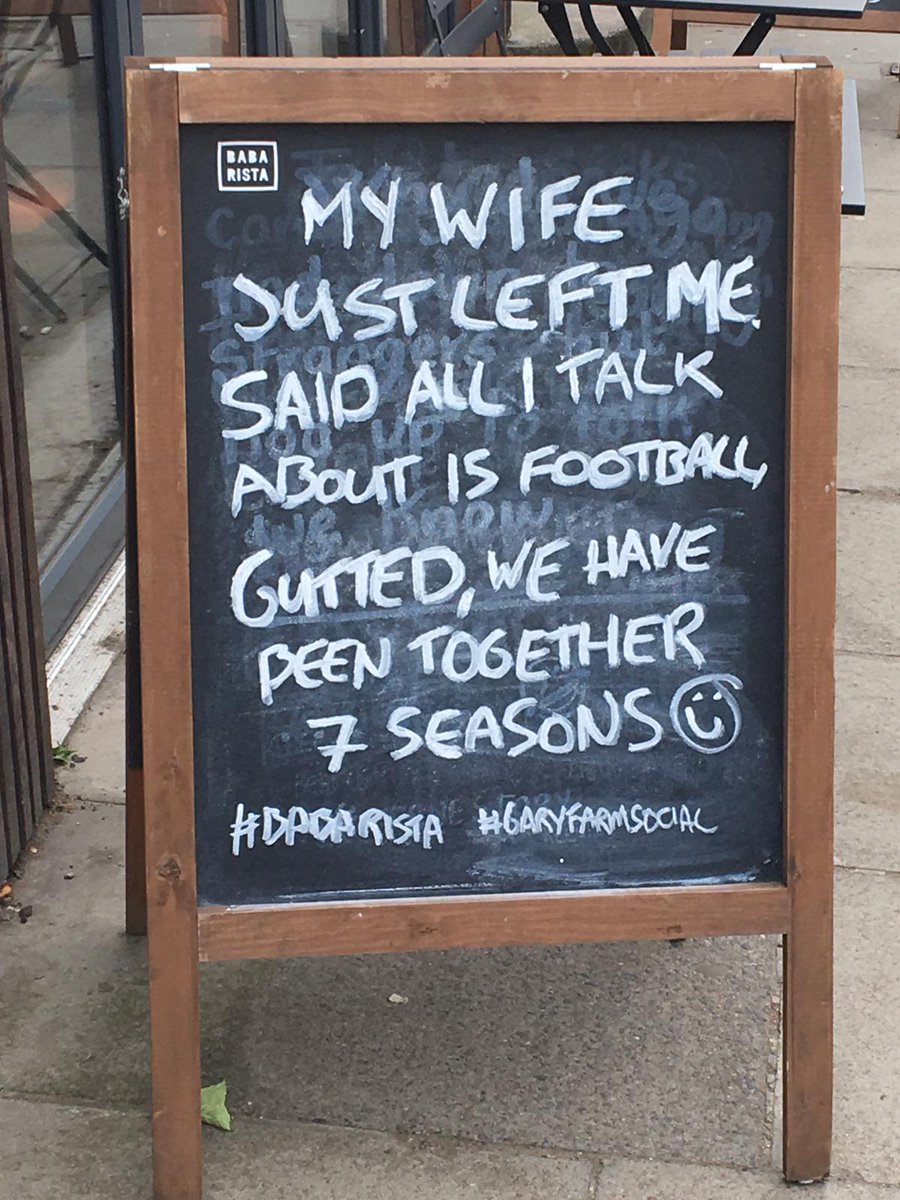 BABA
RISTA
MY WIFE
JUST LEFT ME.
SAID ALL I TALK
ABOUT IS FOOTBALL,
GUTTED, WE HAVE
BEEN TOGETHER
7 SEASONS
#BABARISTA #GARYFARMSOCIAL